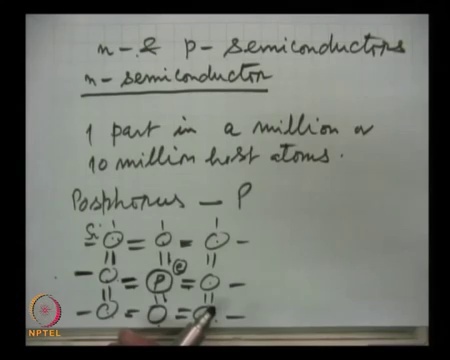 n- & p- semiconductors
n-semiconductor
1 part in a million or
10 million host atoms.
Posphorus — P
Si
P e
NPTEL